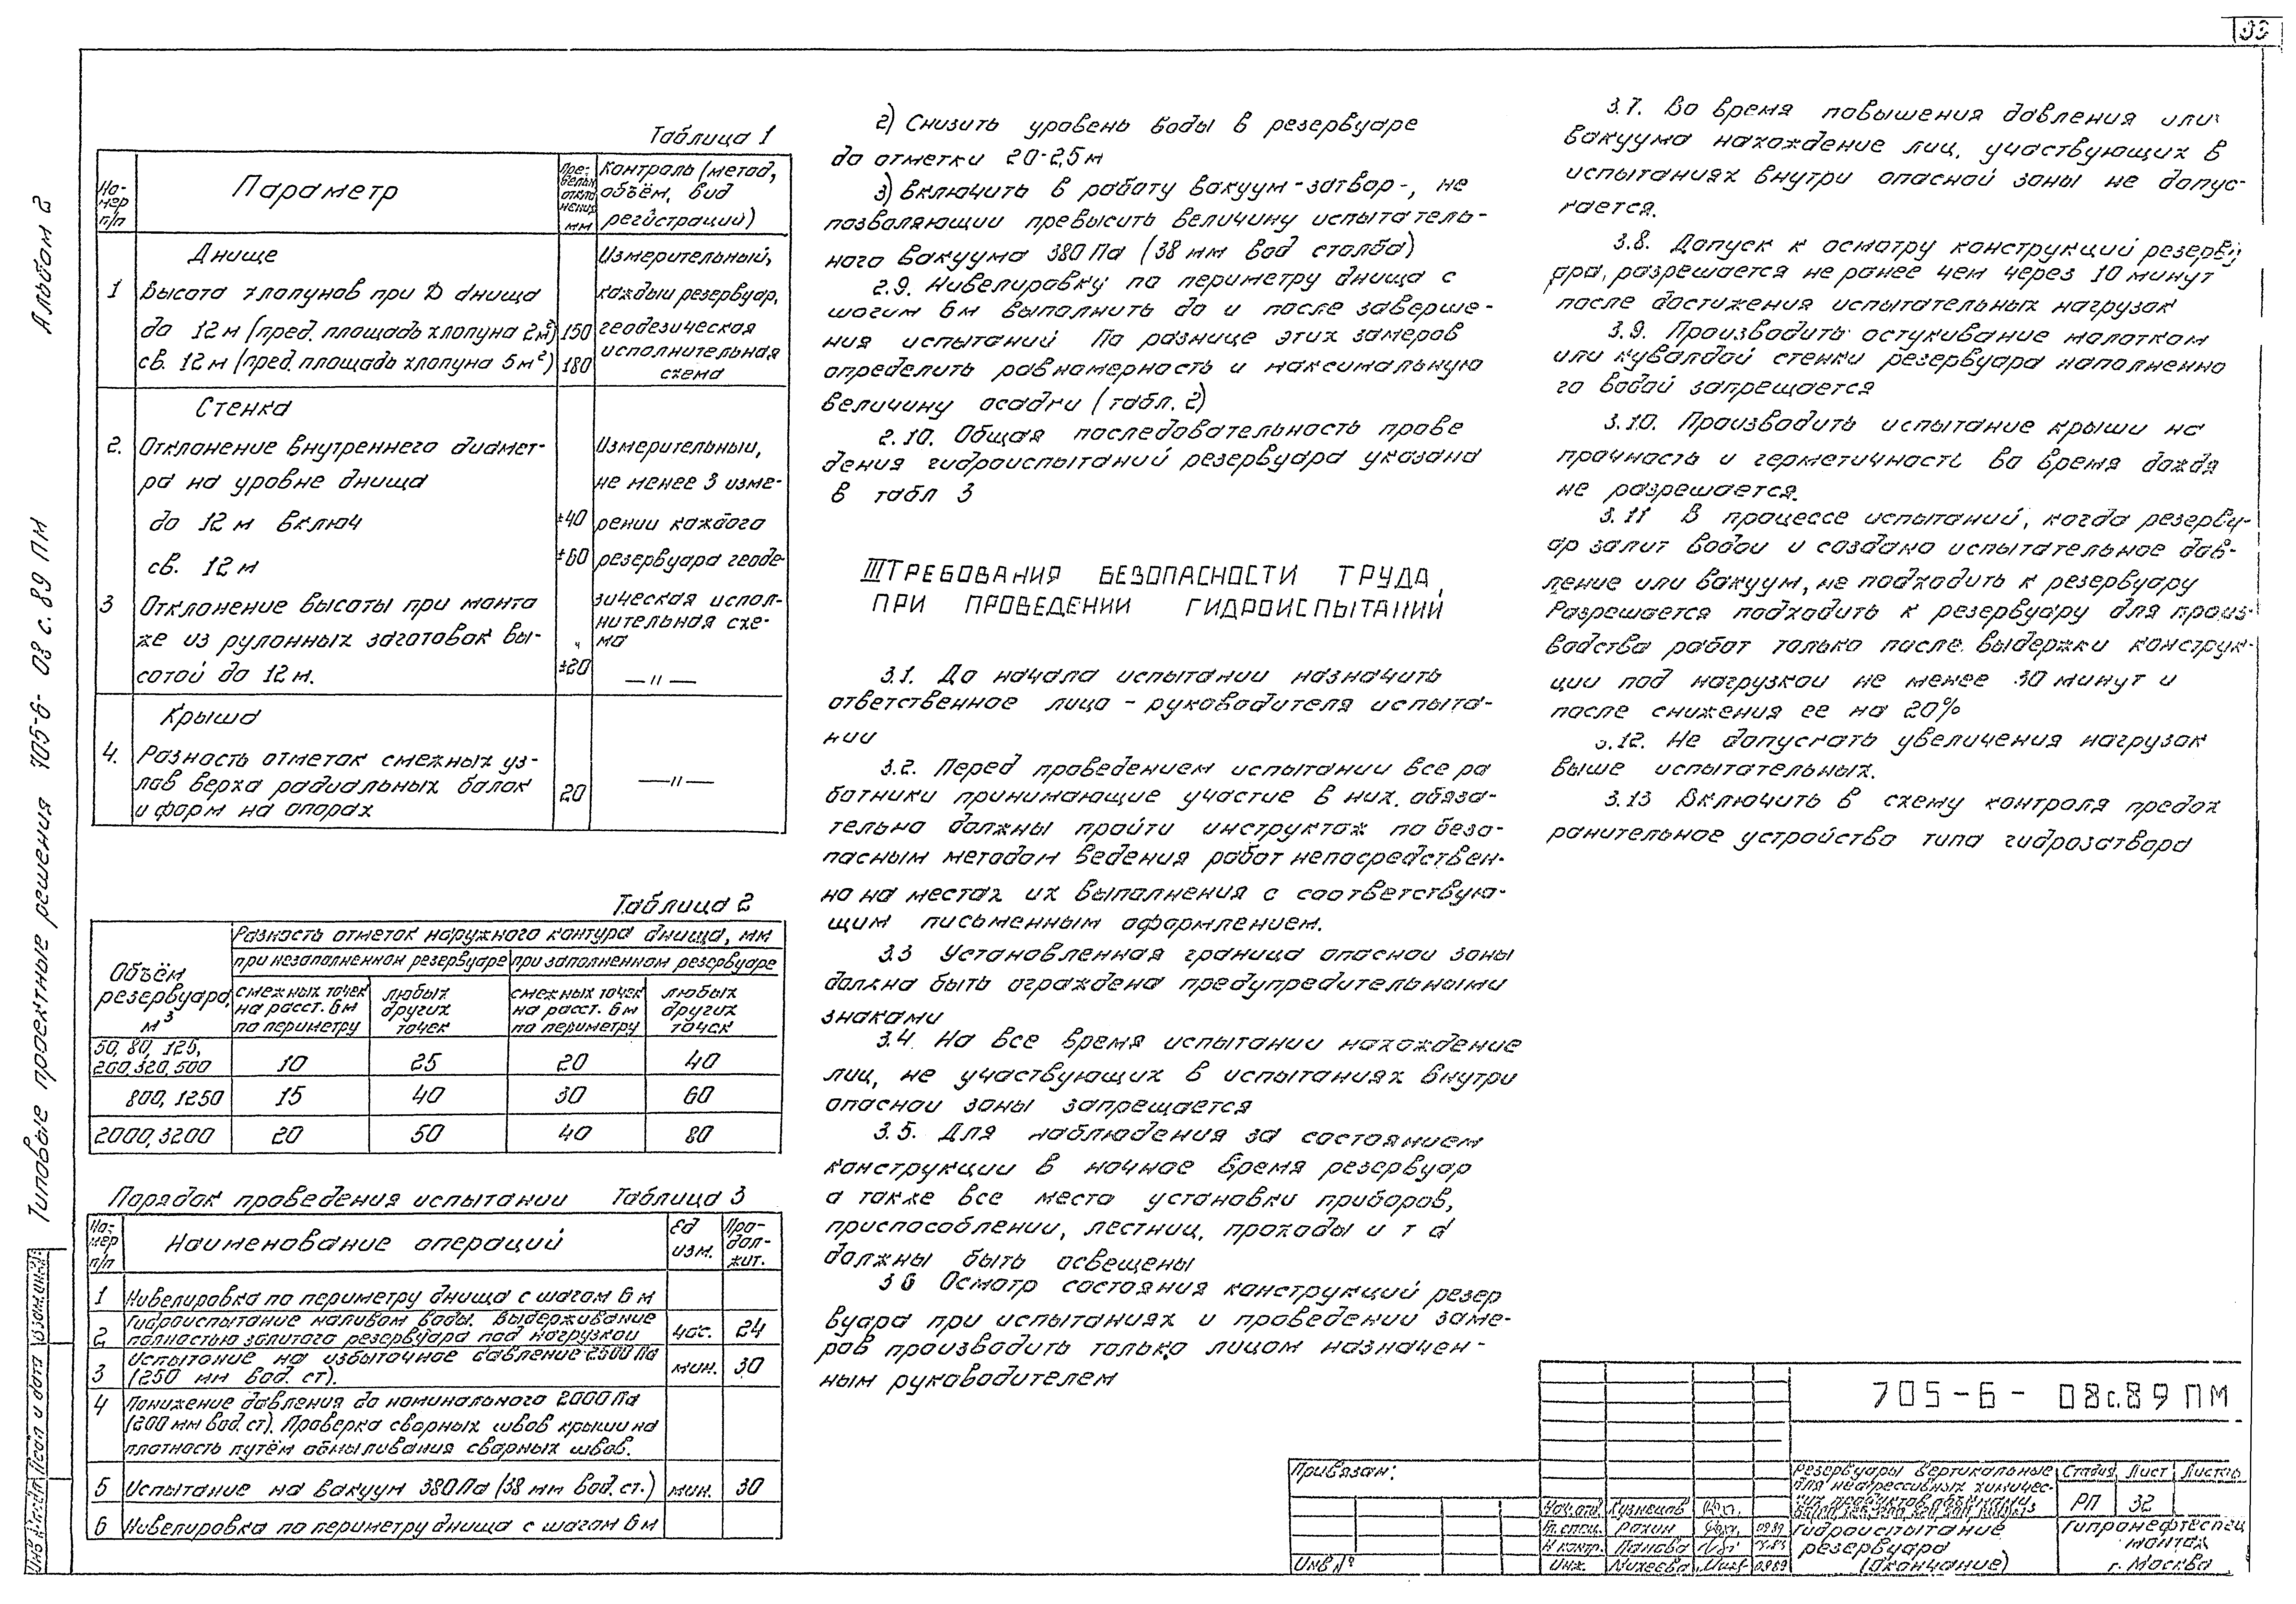 33
Альбом 2
Типовые проектные решения 705-6- 03 с. 89 ПМ
Взам.инв.
Псдп и дата
Таблица 1
Но-
мер
п/п
Параметр
Пре-
дельн.
откло
нения
мм
Контроль (метод,
объём, вид
регистрации)
Днище
Измерительный,
1 Высота хлопунов при D днища
каждый резервуар,
до 12 м (пред. площадь хлопуна 2м²) 150 геодезическая
св. 12 м (пред. площадь хлопуна 5м²) 180 исполнительная
схема
Стенка
2. Отклонение внутреннего диамет- Измерительный,
ра на уровне днища не менее 3 изме-
до 12 м включ ±40 рении каждого
св. 12 м ±60 резервуара геоде-
3 Отклонение высоты при монта зическая испол-
же из рулонных заготовок вы- нительная схе-
ма
сотой до 12 м. ±20 —"—
Крыша
4. Разность отметок смежных уз-
лов верха радиальных балок 20 —"—
и форм на опорах
Таблица 2
Объём
резервуара,
м³
Разность отметок наружного контура днища, мм
при незаполненном резервуаре при заполненном резервуаре
смежных точек
на расст. 6м
по периметру
любых
других
точек
смежных точек
на расст. 6м
по периметру
любых
других
точек
50, 80, 125,
200, 320, 500 10 25 20 40
800, 1250 15 40 30 60
2000, 3200 20 50 40 80
Порядок проведения испытании Таблица 3
Но-
мер
п/п
Наименование операций
Ед
изм.
Про-
дол-
жит.
1 Нивелировка по периметру днища с шагом 6 м
2 Гидроиспытание наливом воды. Выдерживание
полностью залитого резервуара под нагрузкой час. 24
3 Испытание на избыточное давление 2500 Па
(250 мм вод. ст). мин. 30
4 Понижение давления до номинального 2000 Па
(200 мм вод. ст). Проверка сварных швов крыши на
плотность путём обмыливания сварных швов.
5 Испытание на вакуум 380 Па (38 мм вод. ст.) мин. 30
6 Нивелировка по периметру днища с шагом 6 м
2) Снизить уровень воды в резервуаре
до отметки 2 0-2,5 м
3) Включить в работу вакуум-затвор-, не
позволяющии превысить величину испытатель-
ного вакуума 380 Па (38 мм вод столба)
2.9. Нивелировку по периметру днища с
шагом 6м выполнить до и после заверше-
ния испытаний По разнице этих замеров
определить равномерность и максимальную
величину осадки (табл. 2)
2.10. Общая последовательность прове
дения гидроиспытаний резервуара указана
в табл 3
III ТРЕБОВАНИЯ БЕЗОПАСНОСТИ ТРУДА,
ПРИ ПРОВЕДЕНИИ ГИДРОИСПЫТАНИЙ
3.1. До начала испытании назначить
ответственное лицо - руководителя испыта-
нии
3.2. Перед проведением испытании все ра
ботники принимающие участие в них. обяза-
тельно должны пройти инструктаж по безо-
пасным методом ведения работ непосредствен-
но на местах их выполнения с соответствую-
щим письменным оформлением.
3.3 Установленная граница опасной зоны
должна быть ограждена предупредительными
знаками
3.4. На все время испытании нахождение
лиц, не участвующих в испытаниях внутри
опасной зоны запрещается
3.5. Для наблюдения за состоянием
конструкции в ночное время резервуар
а также все места установки приборов,
приспособлении, лестниц, проходы и т д
должны быть освещены
3 6 Осмотр состояния конструкций резер
вуара при испытаниях и проведении заме-
ров производить только лицом назначен-
ным руководителем
3.7. Во время повышения давления или
вакуума нахождение лиц, участвующих в
испытаниях внутри опасной зоны не допус-
кается.
3.8. Допуск к осмотру конструкций резерву
ара, разрешается не ранее чем через 10 минут
после достижения испытательных нагрузок
3.9. Производить остукивание молотком
или кувалдой стенки резервуара наполненно
го водой запрещается
3.10. Производить испытание крыши на
прочность и герметичность во время дождя
не разрешается.
3.11 В процессе испытаний, когда резерву-
ар залит водой и создано испытательное дав-
ление или вакуум, не подходить к резервуару
Разрешается подходить к резервуару для произ-
водства работ только после. выдержки конструк-
ции под нагрузкой не менее 30 минут и
после снижения ее на 20%
3.12. Не допускать увеличения нагрузок
выше испытательных.
3.13 Включить в схему контроля предох
ранительное устройство типа гидрозатвора
705-6- 08с.89 ПМ
Привязан:
Инв №
Нач.отд. Кузнецов
Гл.спец. Рохин 09.89
Н контр. Панова
Инж. Михеева 09.89
Резервуары вертикальные
для неагрессивных химичес-
Стадия Лист Листов
РП 32
Гидроиспытание
резервуара
(окончание)
Гипронефтеспец
монтаж
г. Москва